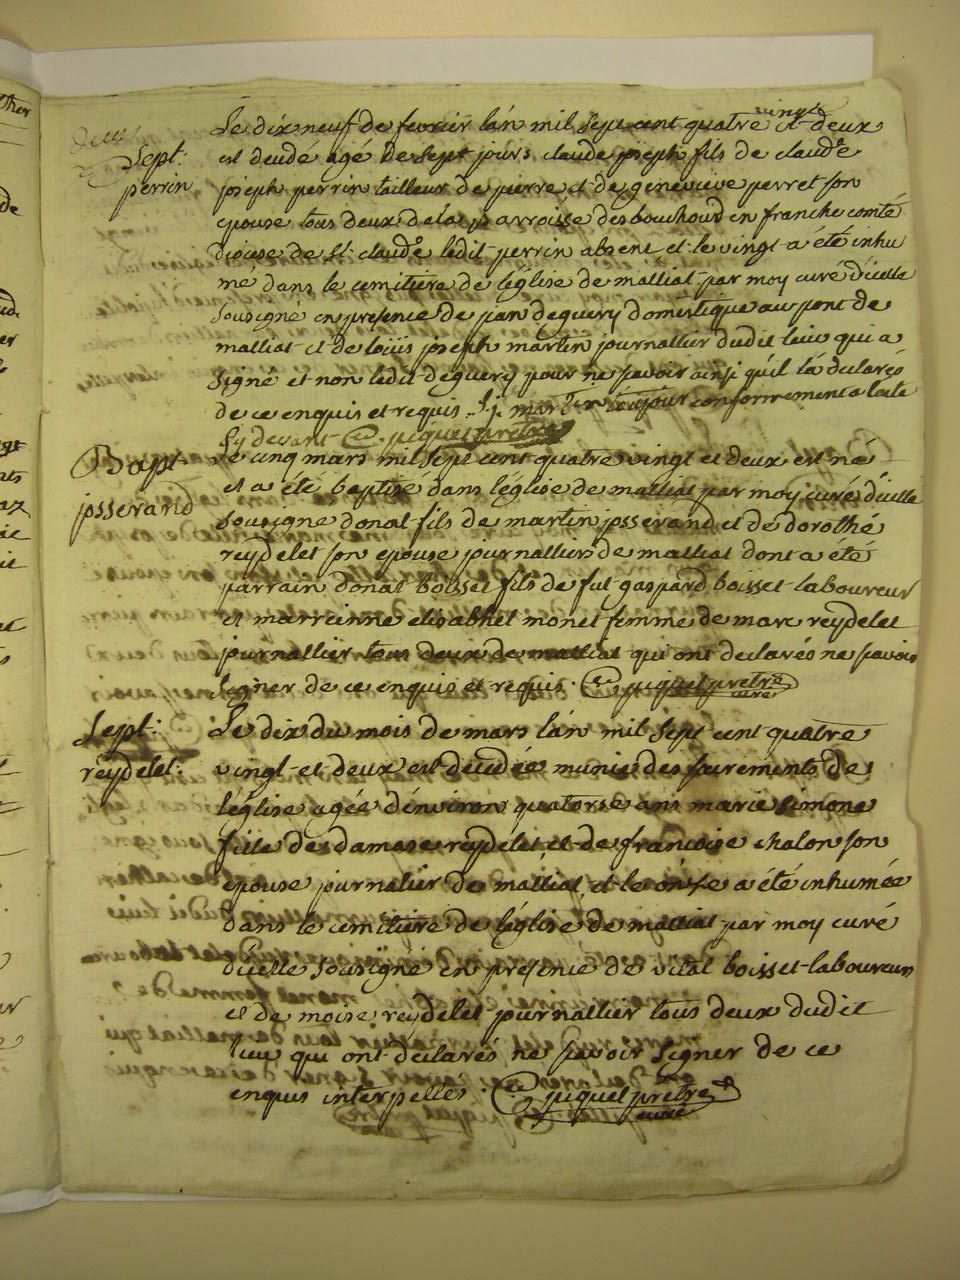 Sept:
perrin
Le dix neuf de fevrier l'an mil sept cent quatre vingts et deux
est decedé agé de sept jours claude joseph fils de claude
joseph perrin tailleur de pierre et de genevieve perret son
epouse tous deux de la parroisse des bouchoud en franche comté
diocese de st claude ledit perrin absent et le vingt a été inhu
mé dans le cemitiere de l'église de malliat par moy curé d'icelle
sousigné en presence de jean deguery domestique au pont de
malliat et de loüis joseph martin journallier dudit lieu qui a
signé et non ledit deguery pour ne sçavoir ainsi qu'il l'a declarés
de ce enquis et requis. L. j. martin conformement a l'acte
cy devant juquet prêtre
Bapt.
josserand
Le cinq mars mil sept cent quatre vingt et deux est né
et a été baptisé dans l'église de malliat par moy curé d'icelle
sousigné donat fils de martin josserand et de dorothé
reydelet son epouse journalliers de malliat dont a été
parrain donat boisset fils de fut gaspard boisset laboureur
et marreinne elisabhet monet femme de marc reydelet
journallier tous deux de malliat qui ont declarés ne sçavoir
signer de ce enquis et requis. juquet prêtre
curé
Sept:
reydelet.
Le dix du mois de mars l'an mil sept cent quatre
vingt et deux est decedée munie des sacrements de
l'église agée d'environ quatorse ans marie simone
fille de damase reydelet et de francoise chalon son
epouse journalier de malliat et le onse a été inhumée
dans le cemitiere de l'église de malliat par moy curé
d'icelle sousigné en presence de vital boisset laboureur
et de moise reydelet journallier tous deux dudit
lieu qui ont declarés ne sçavoir signer de ce
enquis interpellés. juquet prêtre
curé